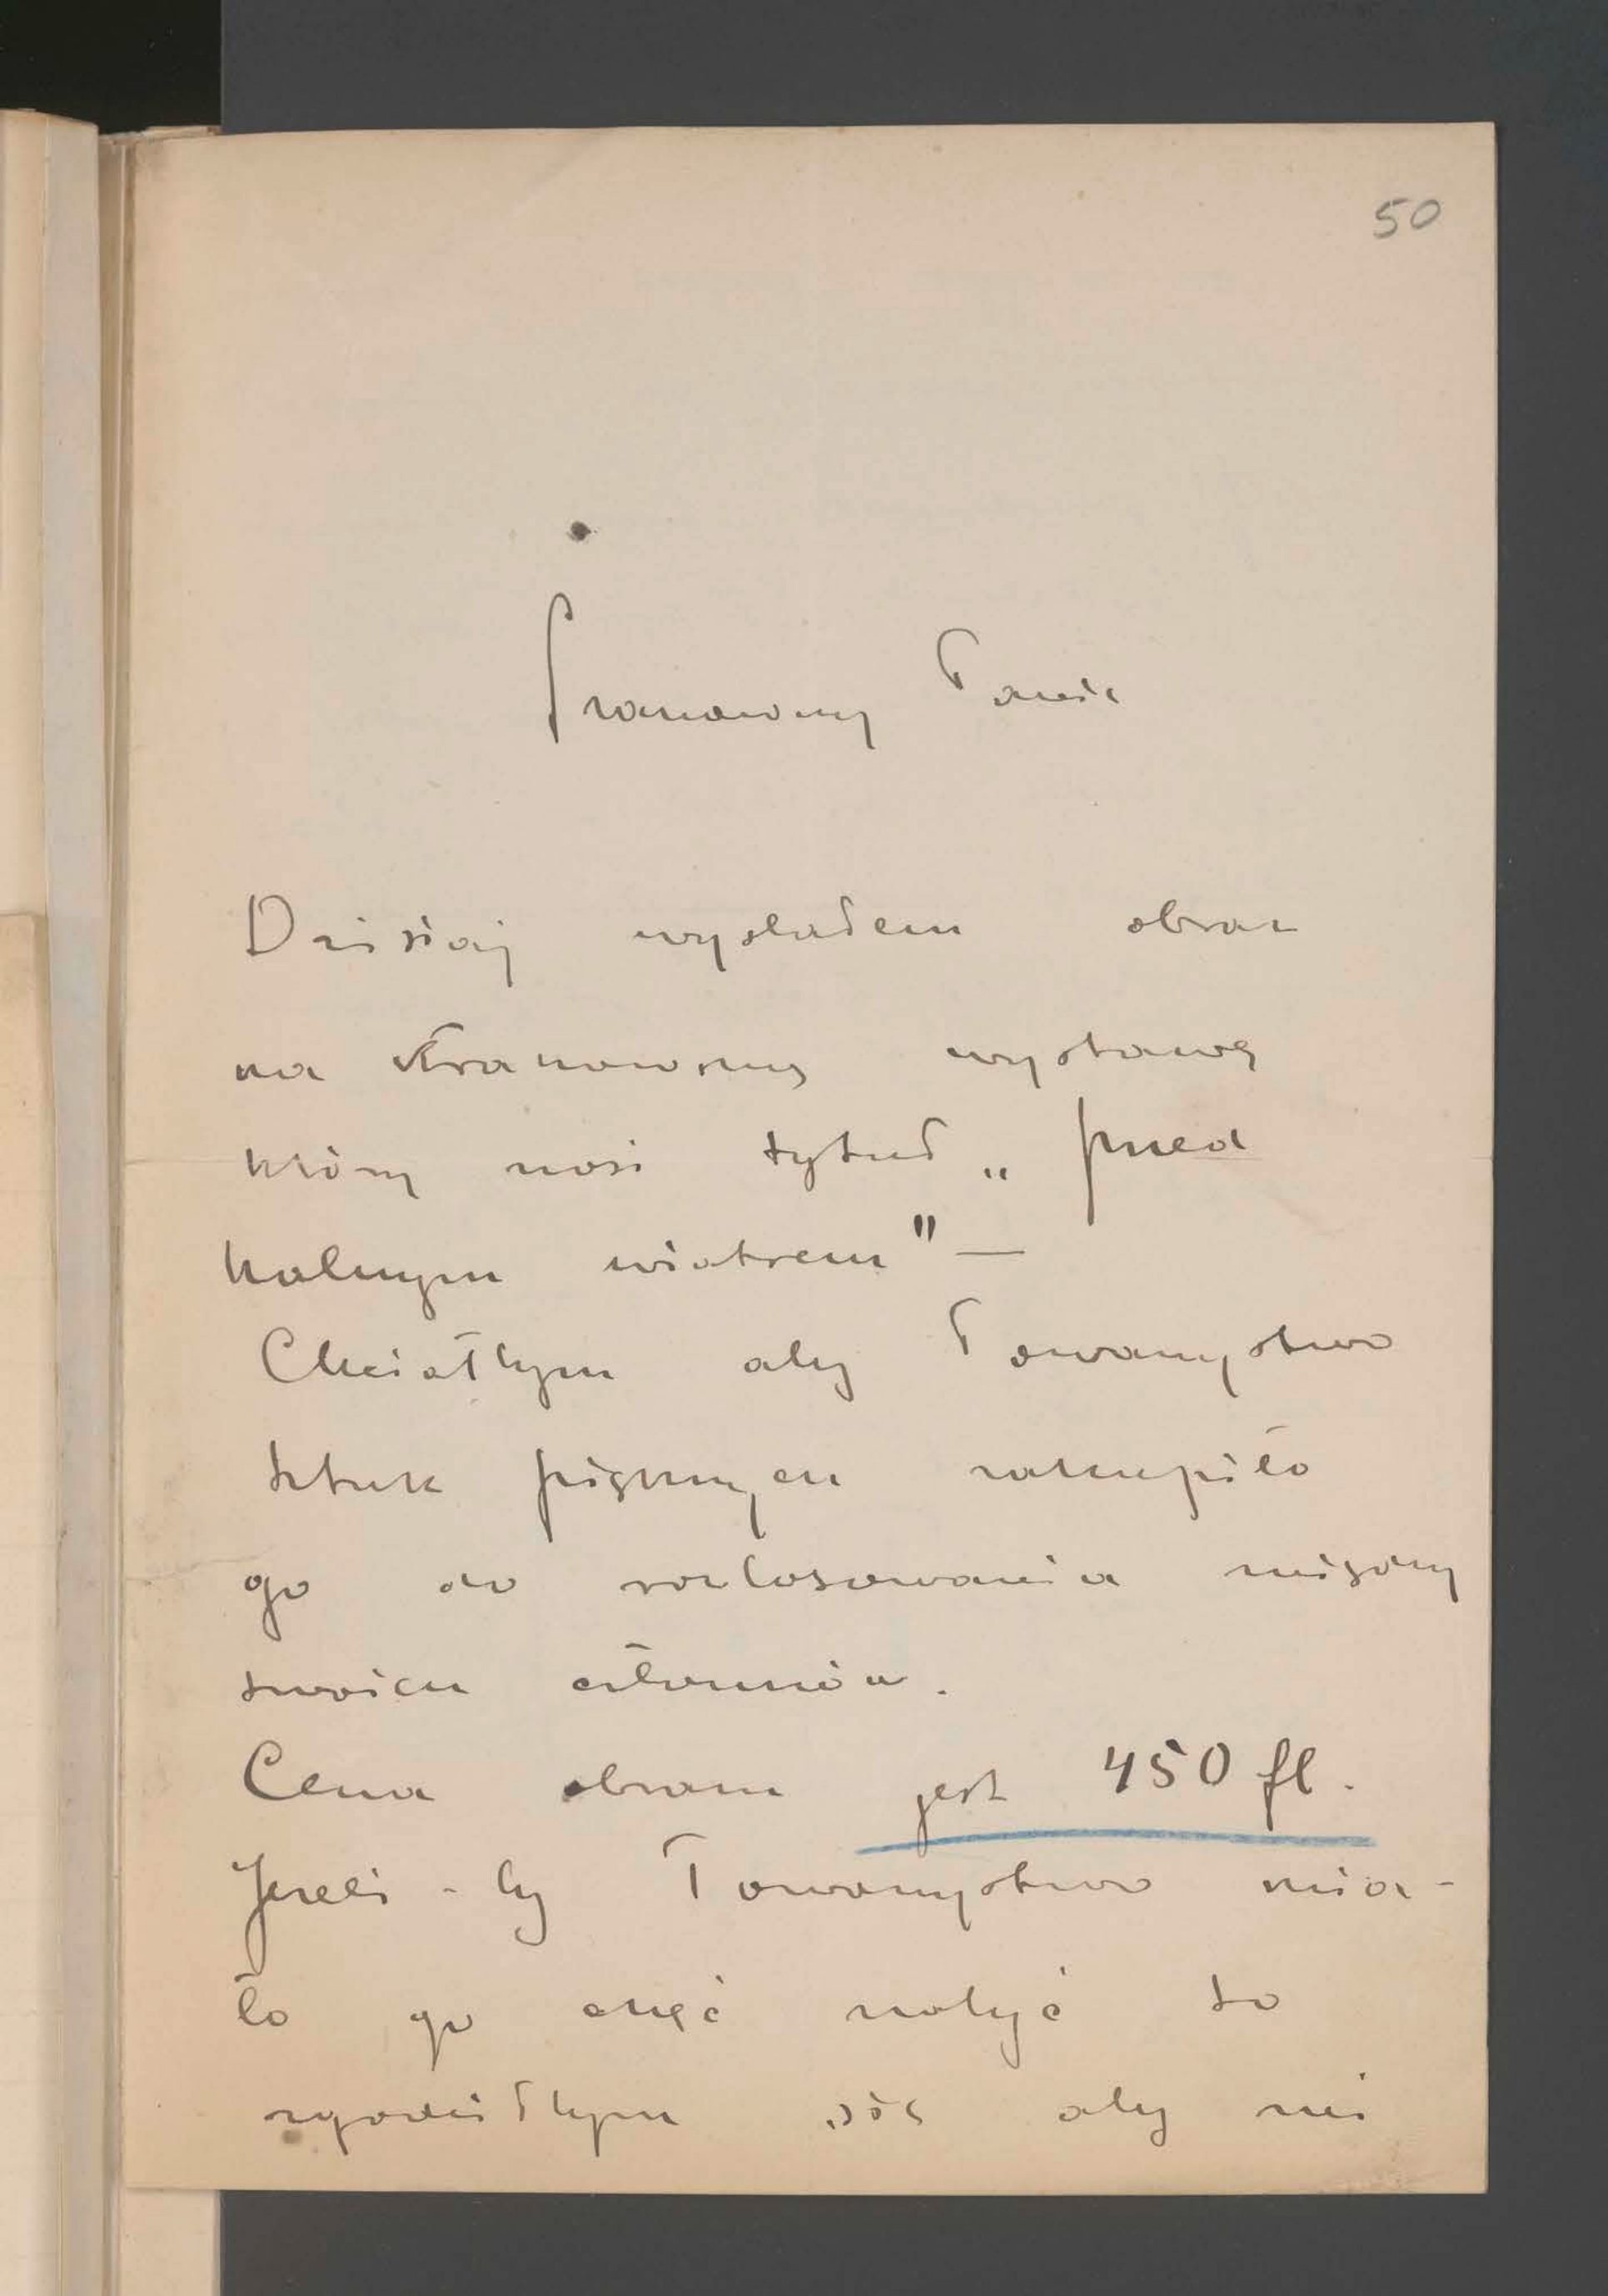 50
Szanowny Panie
Dzisiaj wysłałem obraz
na Krakowską wystawę
który nosi tytuł „przed
halnym wiatrem" —
Chciałbym aby Towarzystwo
sztuk pięknych zakupiło
go do rozlosowania między
swoich członków.
Cena obrazu jest 450 fl.
Jeżeli-by Towarzystwo mia-
ło go chęć nabyć to
zgodziłbym się aby mi